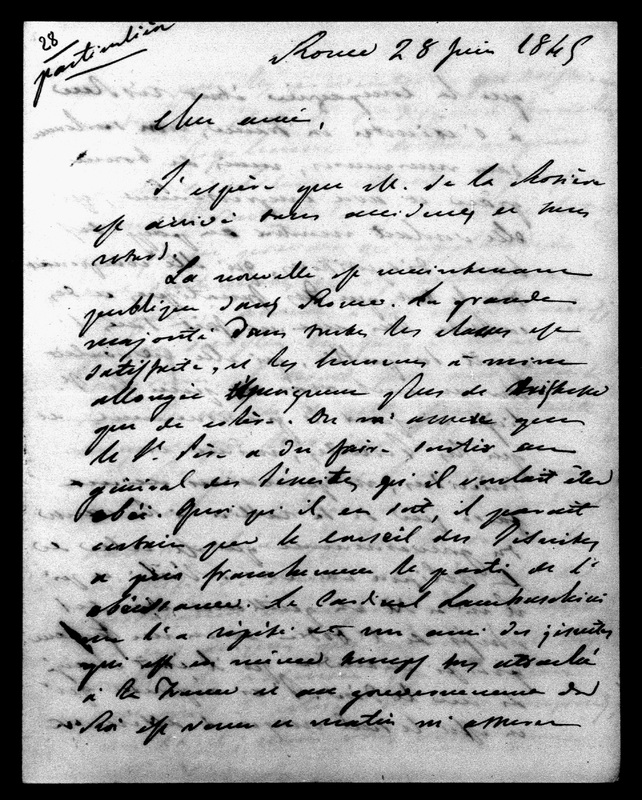 28
particulière
Rome 28 juin 1845
Cher ami,
J'espère que M. de la Rosière
est arrivé sans accidents et sans
retard.
La nouvelle est maintenant
publique dans Rome. La grande
majorité dans toutes les classes est
satisfaite, et les hommes à mine
allongée témoignent plus de tristesse
que de colère. On m'assure que
le St. Père a du faire sentir au
général des Jésuites qu'il voulait être
obéi. Quoi qu'il en soit, il parait
certain que le conseil des Jésuites
a pris franchement le parti de l'
obéissance. Le Cardinal Lambruschini
me l'a répété et un ami des jésuites
qui est en même temps très attaché
à la France et au gouvernement du
Roi est venu ce matin m'assurer